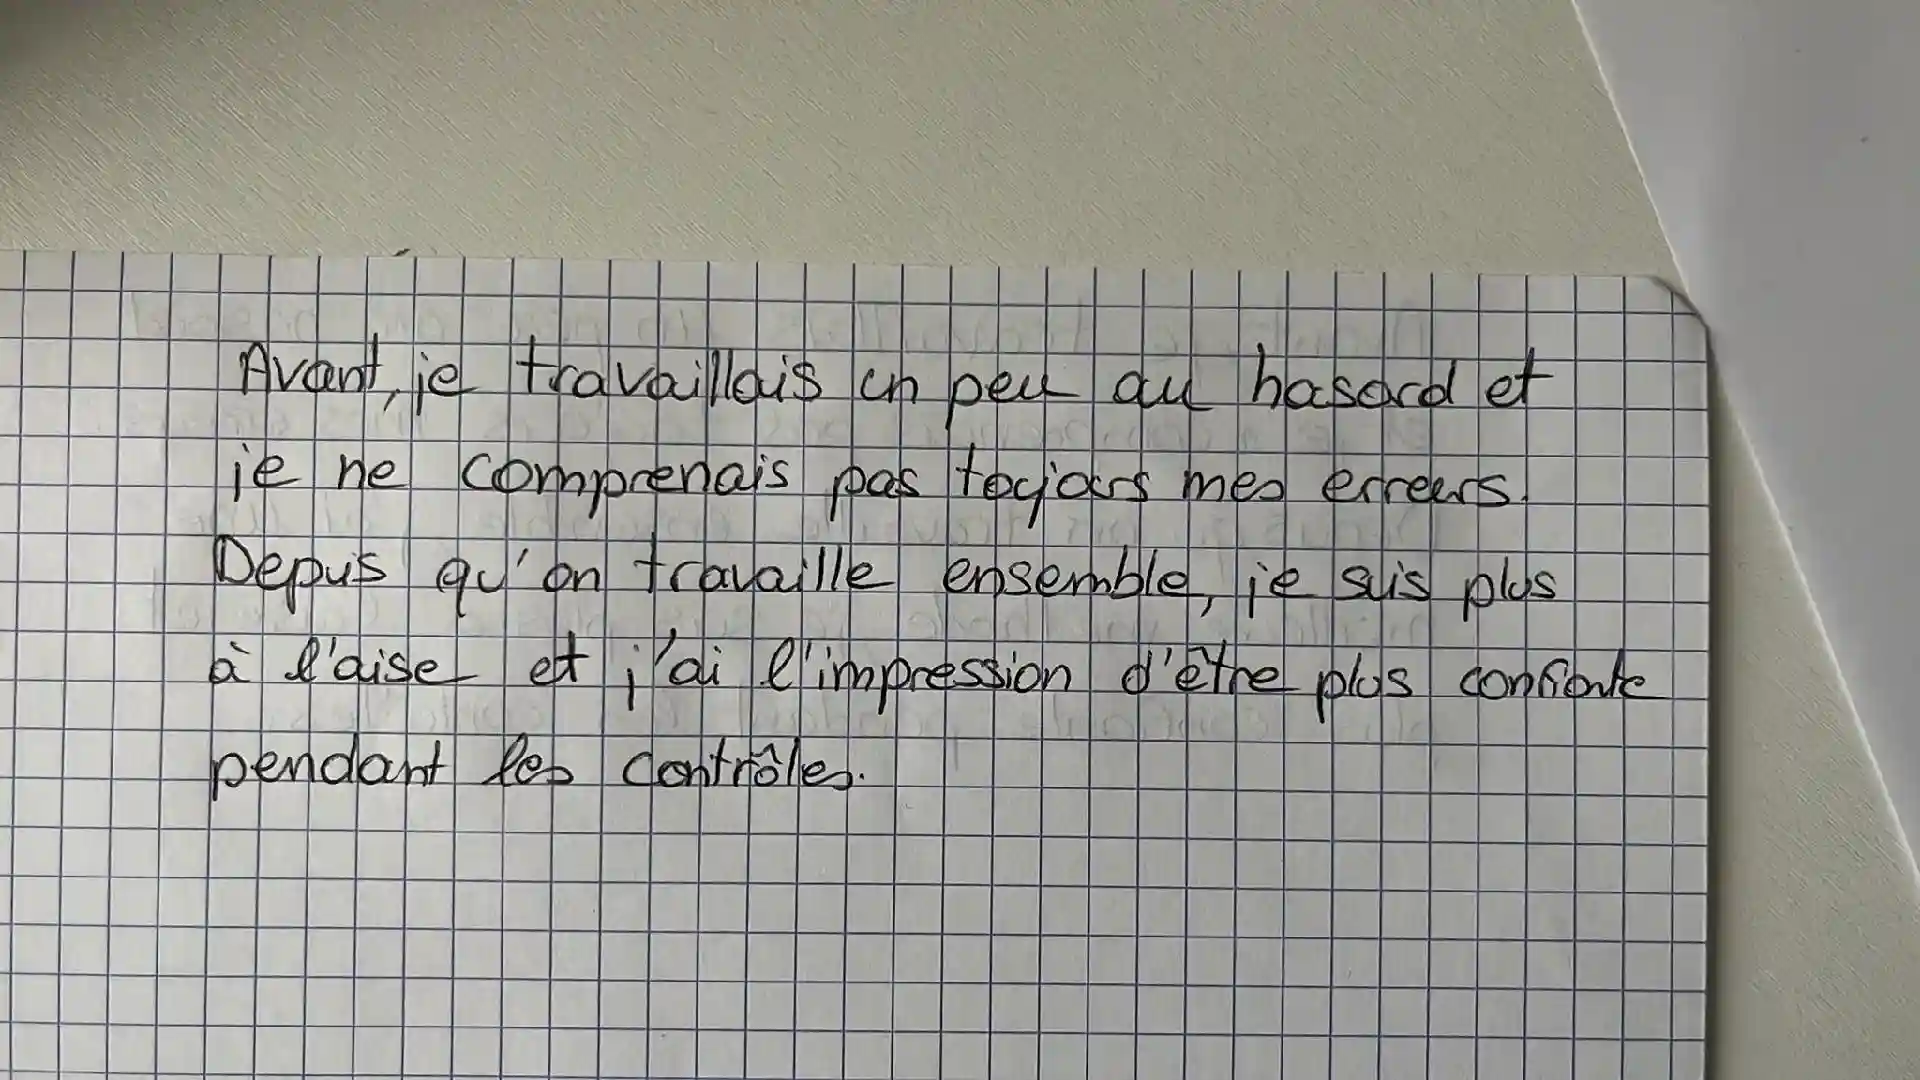 Avant, je travaillais un peu au hasard et
je ne comprenais pas toujours mes erreurs.
Depuis qu'on travaille ensemble, je suis plus
à l'aise et j'ai l'impression d'être plus confiante
pendant les contrôles.